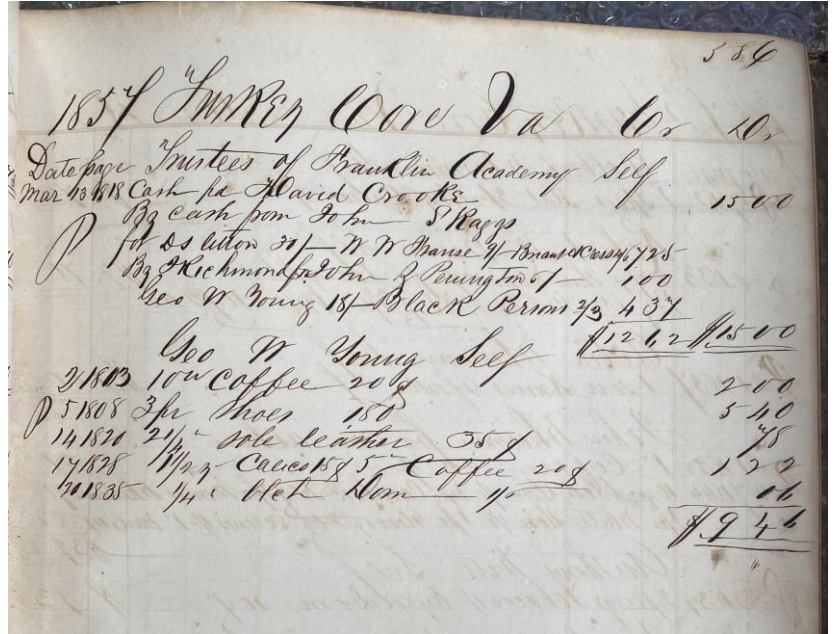 586
1857 Turkey Cove Va Cr Dr
Date page Trustees of Franklin Academy Self
Mar 13 1818 Cash pd David Crooke 1500
By cash from John Skaggs
for DS litton 30/– W W 9/– 6/ 725
By Richmond for John Penington 6/– 100
Geo W Young 18/– Black Persons 2/3 437
$1262 $1500
Geo W Young Self
2/1803 10 coffee 20¢ 200
5 1808 3 pr Shoes 180 540
14 1820 2 1/4 " sole leather 35¢ 78
17 1828 Calico 15¢ 5 Coffee 20¢ 122
20 1835 3/4 " blch Dom 06
$946